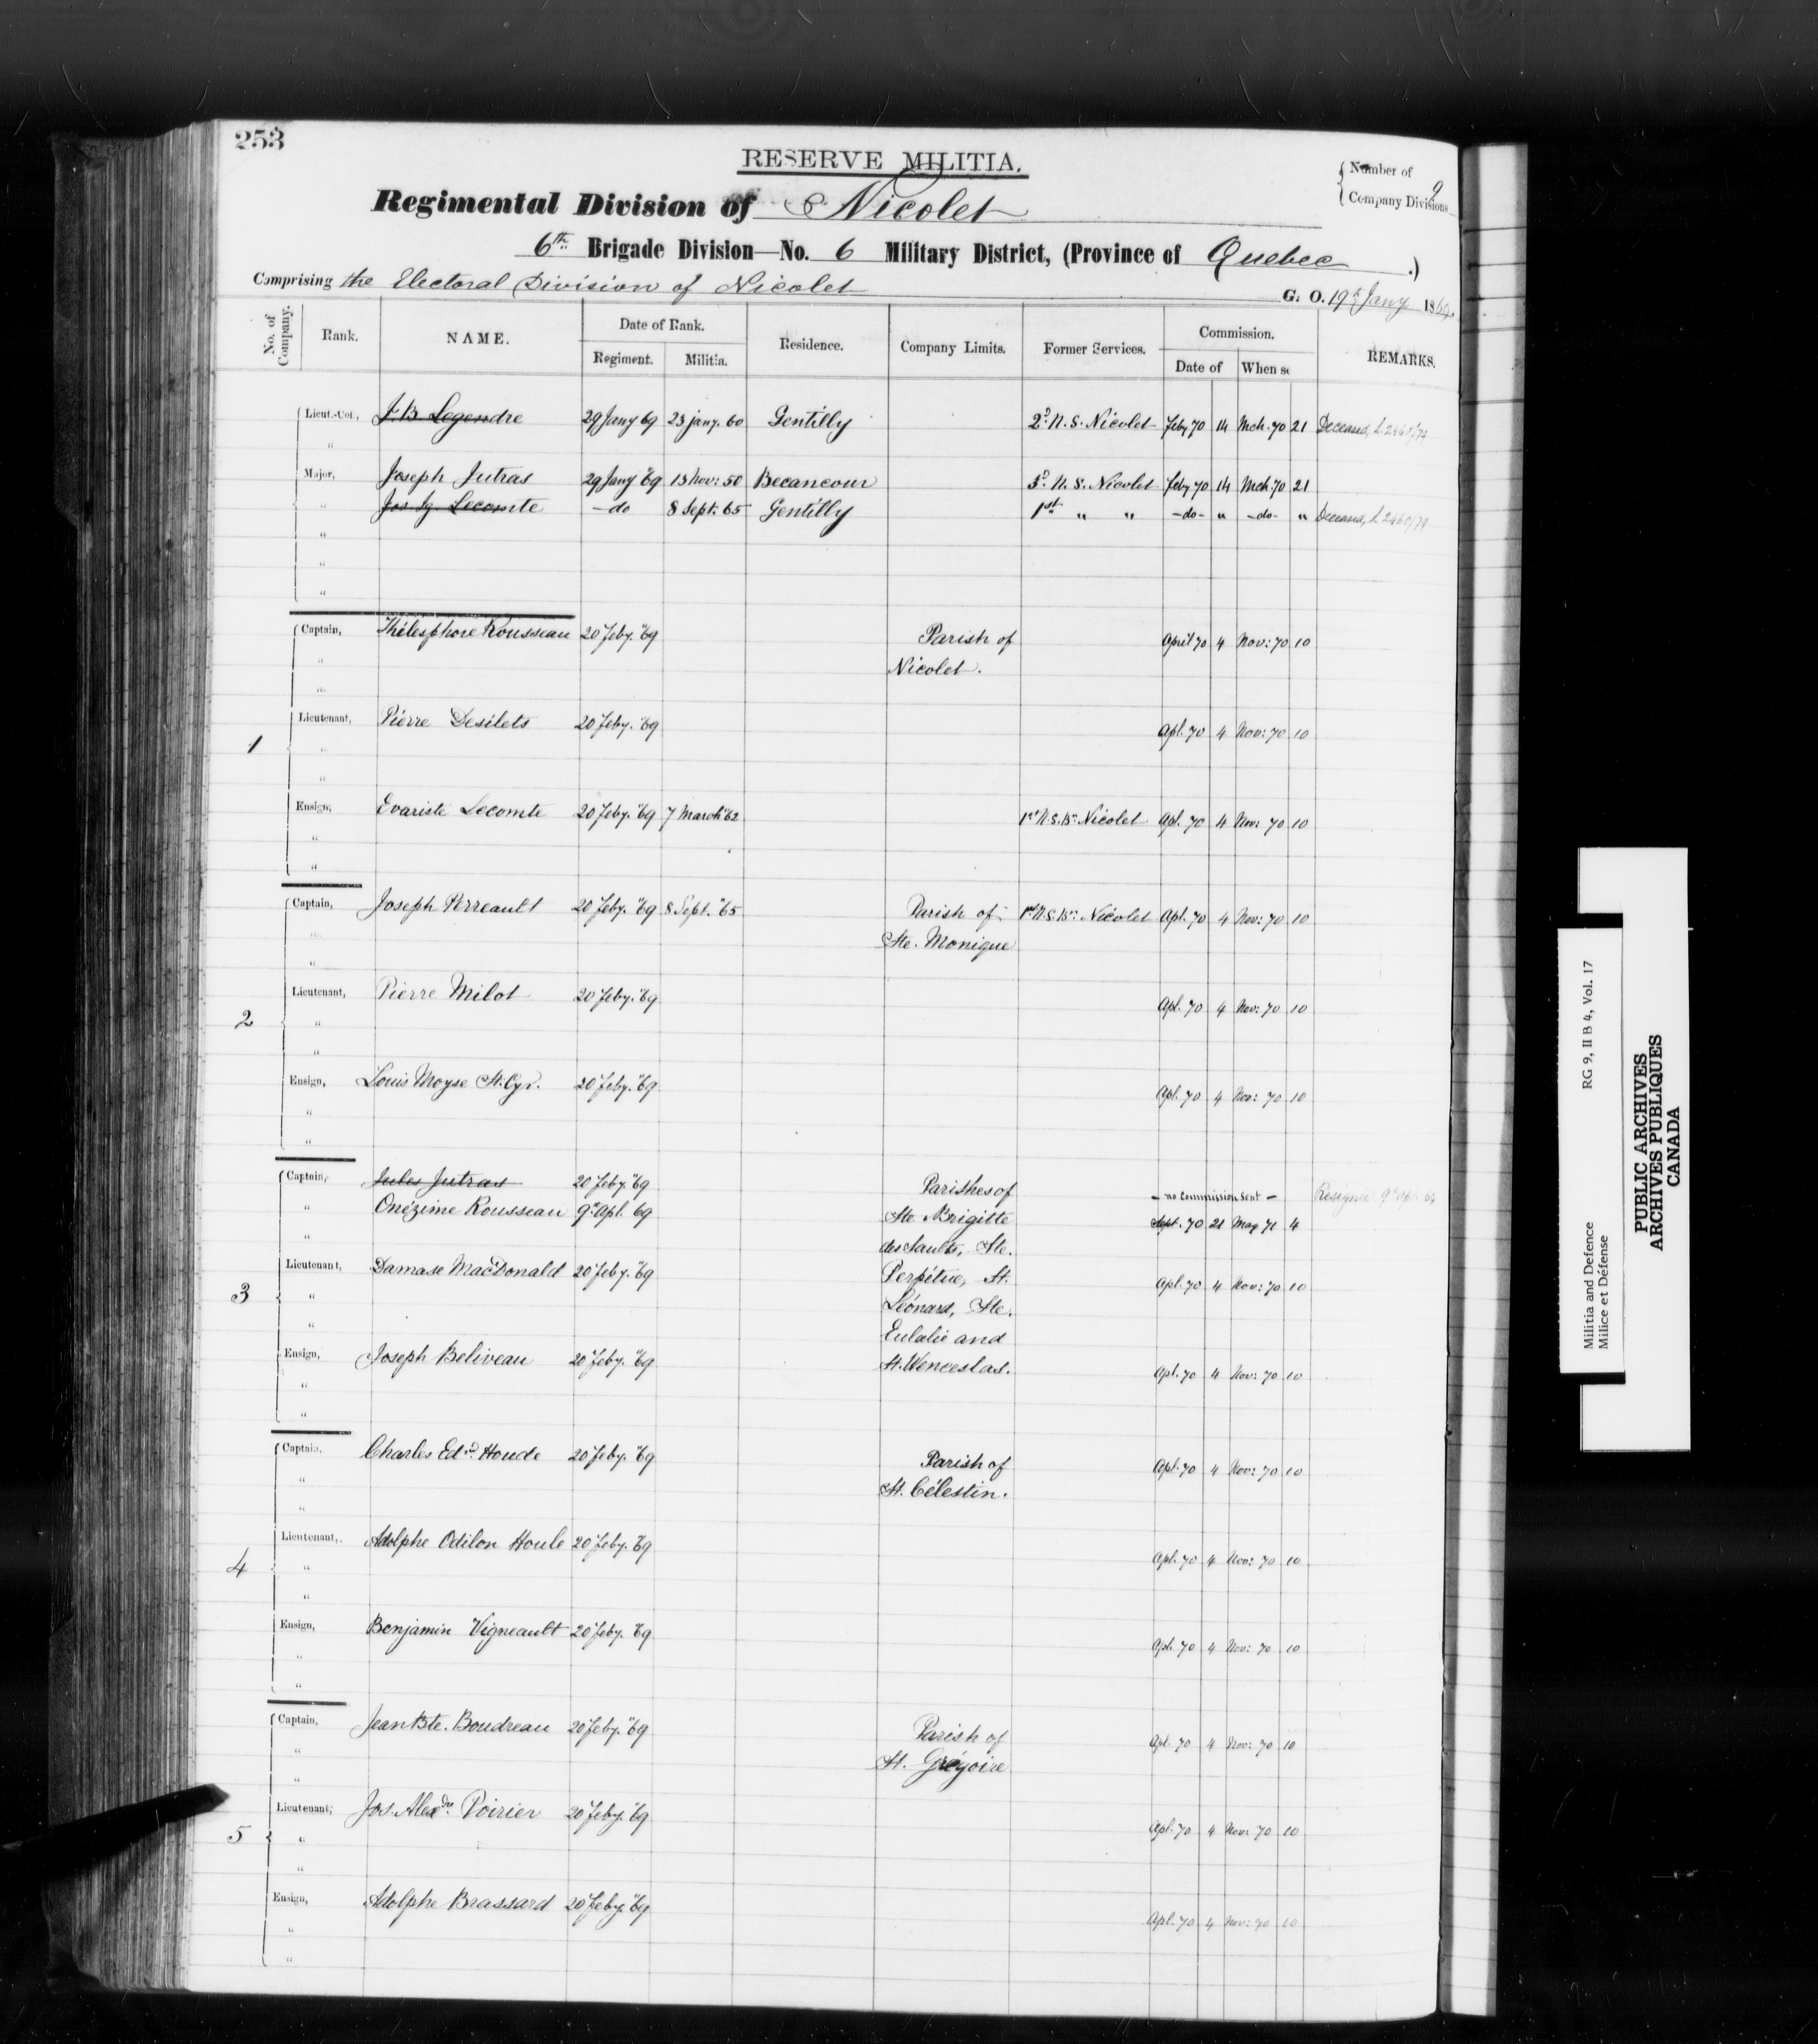 253
RESERVE MILITIA.
Number of
Company Divisions 9
Regimental Division of Nicolet
6th Brigade Division—No. 6 Military District, (Province of Quebec.)
Comprising the Electoral Division of Nicolet
G. O. 19th Jany 1869.
No. of Company. Rank. NAME. Date of Rank. Residence. Company Limits. Former Services. Commission. REMARKS.
Regiment. Militia. Date of When se
Lieut.-Col., J. B. Legendre 29 Jany 69 23 jany. 60 Gentilly 2d N. S. Nicolet Feby 70 14 Mch. 70 21 Deceased, L 2460/79
"
Major, Joseph Jutras 29 Jany "69 13 Nov: 50 Becancour 3d N. S. Nicolet Feby 70 14 Mch. 70 21
" Jos. Ig. Lecomte -do 8 Sept. 65 Gentilly 1st " " -do- " -do- " Deceased, L 2460/79
"
"
"
Captain, Thélesphore Rousseau 20 Feby. "69 Parish of April 70 4 Nov: 70 10
" Nicolet.
"
Lieutenant, Pierre Desilets 20 Feby. "69 Apl. 70 4 Nov: 70 10
1 "
"
Ensign, Evariste Lecomte 20 Feby. "69 7 March "62 1st N. S. Bn Nicolet Apl. 70 4 Nov: 70 10
"
"
Captain, Joseph Perreault 20 Feby. "69 8 Sept. "65 Parish of 1st N. S. Bn Nicolet Apl. 70 4 Nov: 70 10
" Ste. Monique
"
Lieutenant, Pierre Milot 20 Feby. "69 Apl. 70 4 Nov: 70 10
2 "
"
Ensign, Louis Moyse St. Cyr. 20 Feby. "69 Apl. 70 4 Nov: 70 10
"
"
Captain, Jules Jutras 20 Feby. "69 Parishes of - no commission sent - Resigned 9th Apl. 69
" Onézime Rousseau 9th Apl. 69 Ste Brigitte Sept. 70 21 May 71 4
" des Saults, Ste.
Lieutenant, Damase MacDonald 20 Feby. "69 Perpétue, St. Apl. 70 4 Nov: 70 10
3 " Léonard, Ste.
" Eulalie and
Ensign, Joseph Beliveau 20 Feby. "69 St. Wenceslas. Apl. 70 4 Nov: 70 10
"
"
Captain, Charles Edrd Houde 20 Feby. "69 Parish of Apl. 70 4 Nov: 70 10
" St. Célestin.
"
Lieutenant, Adolphe Odilon Houle 20 Feby. "69 Apl. 70 4 Nov: 70 10
4 "
"
Ensign, Benjamin Vigneault 20 Feby. "69 Apl. 70 4 Nov: 70 10
"
"
Captain, Jean Bte. Boudreau 20 Feby. "69 Parish of Apl. 70 4 Nov: 70 10
" St. Grégoire
"
Lieutenant, Jos. Alexdre Poirier 20 Feby. "69 Apl. 70 4 Nov: 70 10
5 "
"
Ensign, Adolphe Brassard 20 Feby. "69 Apl. 70 4 Nov: 70 10
"
"
Militia and Defence RG 9, II B 4, Vol. 17
Milice et Défense
PUBLIC ARCHIVES
ARCHIVES PUBLIQUES
CANADA